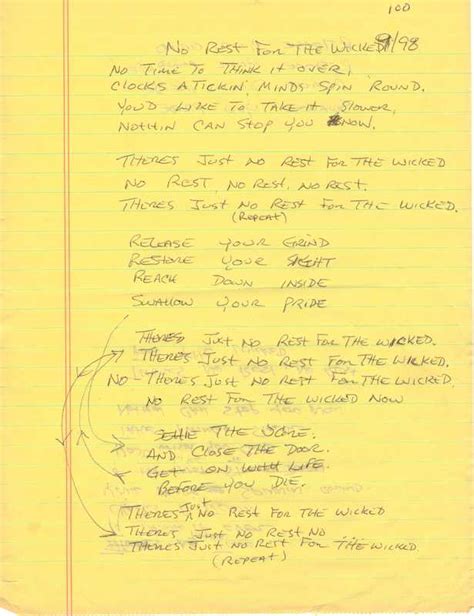 100
No Rest For The Wicked 9/98
No Time To Think it over,
Clocks A Tickin', Minds Spin Round.
You'd Like To Take it Slower,
Nothin Can Stop You Now.
Theres Just No Rest For The Wicked
No Rest, No Rest, No Rest.
Theres Just No Rest For The Wicked.
(Repeat)
Release Your Grind
Restore Your Sight
Reach Down Inside
Swallow Your Pride
Theres Just No Rest For The Wicked.
Theres Just No Rest For The Wicked.
No - Theres Just No Rest For The Wicked,
No Rest For The Wicked Now
The Score.
And Close The Door.
Get on with Life
Before You Die.
Theres Just No Rest For The Wicked
Theres Just No Rest No
Theres Just No Rest For The Wicked.
(Repeat)